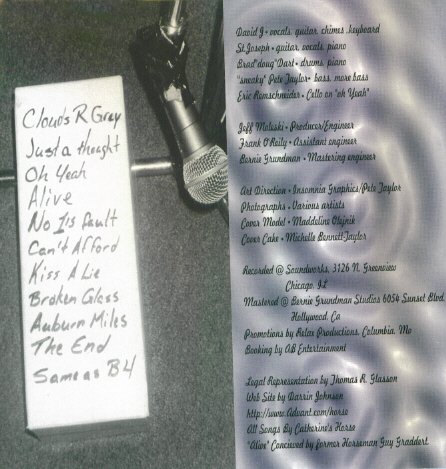 Clouds R Grey
Just a thought
Oh Yeah
Alive
No 1's fault
Can't Afford
Kiss A Lie
Broken Glass
Auburn Miles
The End
Same as B4
David J • vocals, guitar, chimes, keyboard
St.Joseph • guitar, vocals, piano
Brad"doug"Dart • drums, piano
"sneaky" Pete Taylor• bass, more bass
Eric Remschneider • Cello on "oh Yeah"
Jeff Moleski • Producer/Engineer
Frank O'Reily • Assistant engineer
Bernie Grundman • Mastering engineer
Art Direction • Insomnia Graphics/Pete Taylor
Photographs • Various artists
Cover Model • Maddeline Olejnik
Cover Cake • Michelle Bennett-Taylor
Recorded @ Soundworks, 3126 N. Greenview
Chicago, IL
Mastered @ Bernie Grundman Studios 6054 Sunset Blvd
Hollywood, Ca
Promotions by Relax Productions, Columbia, Mo
Booking by AB Entertainment
Legal Representation by Thomas R. Glasson
Web Site by Darrin Johnson
http://www.Advant.com/horse
All Songs By Catherine's Horse
"Alive" Concieved by former Horseman Guy Graddert.